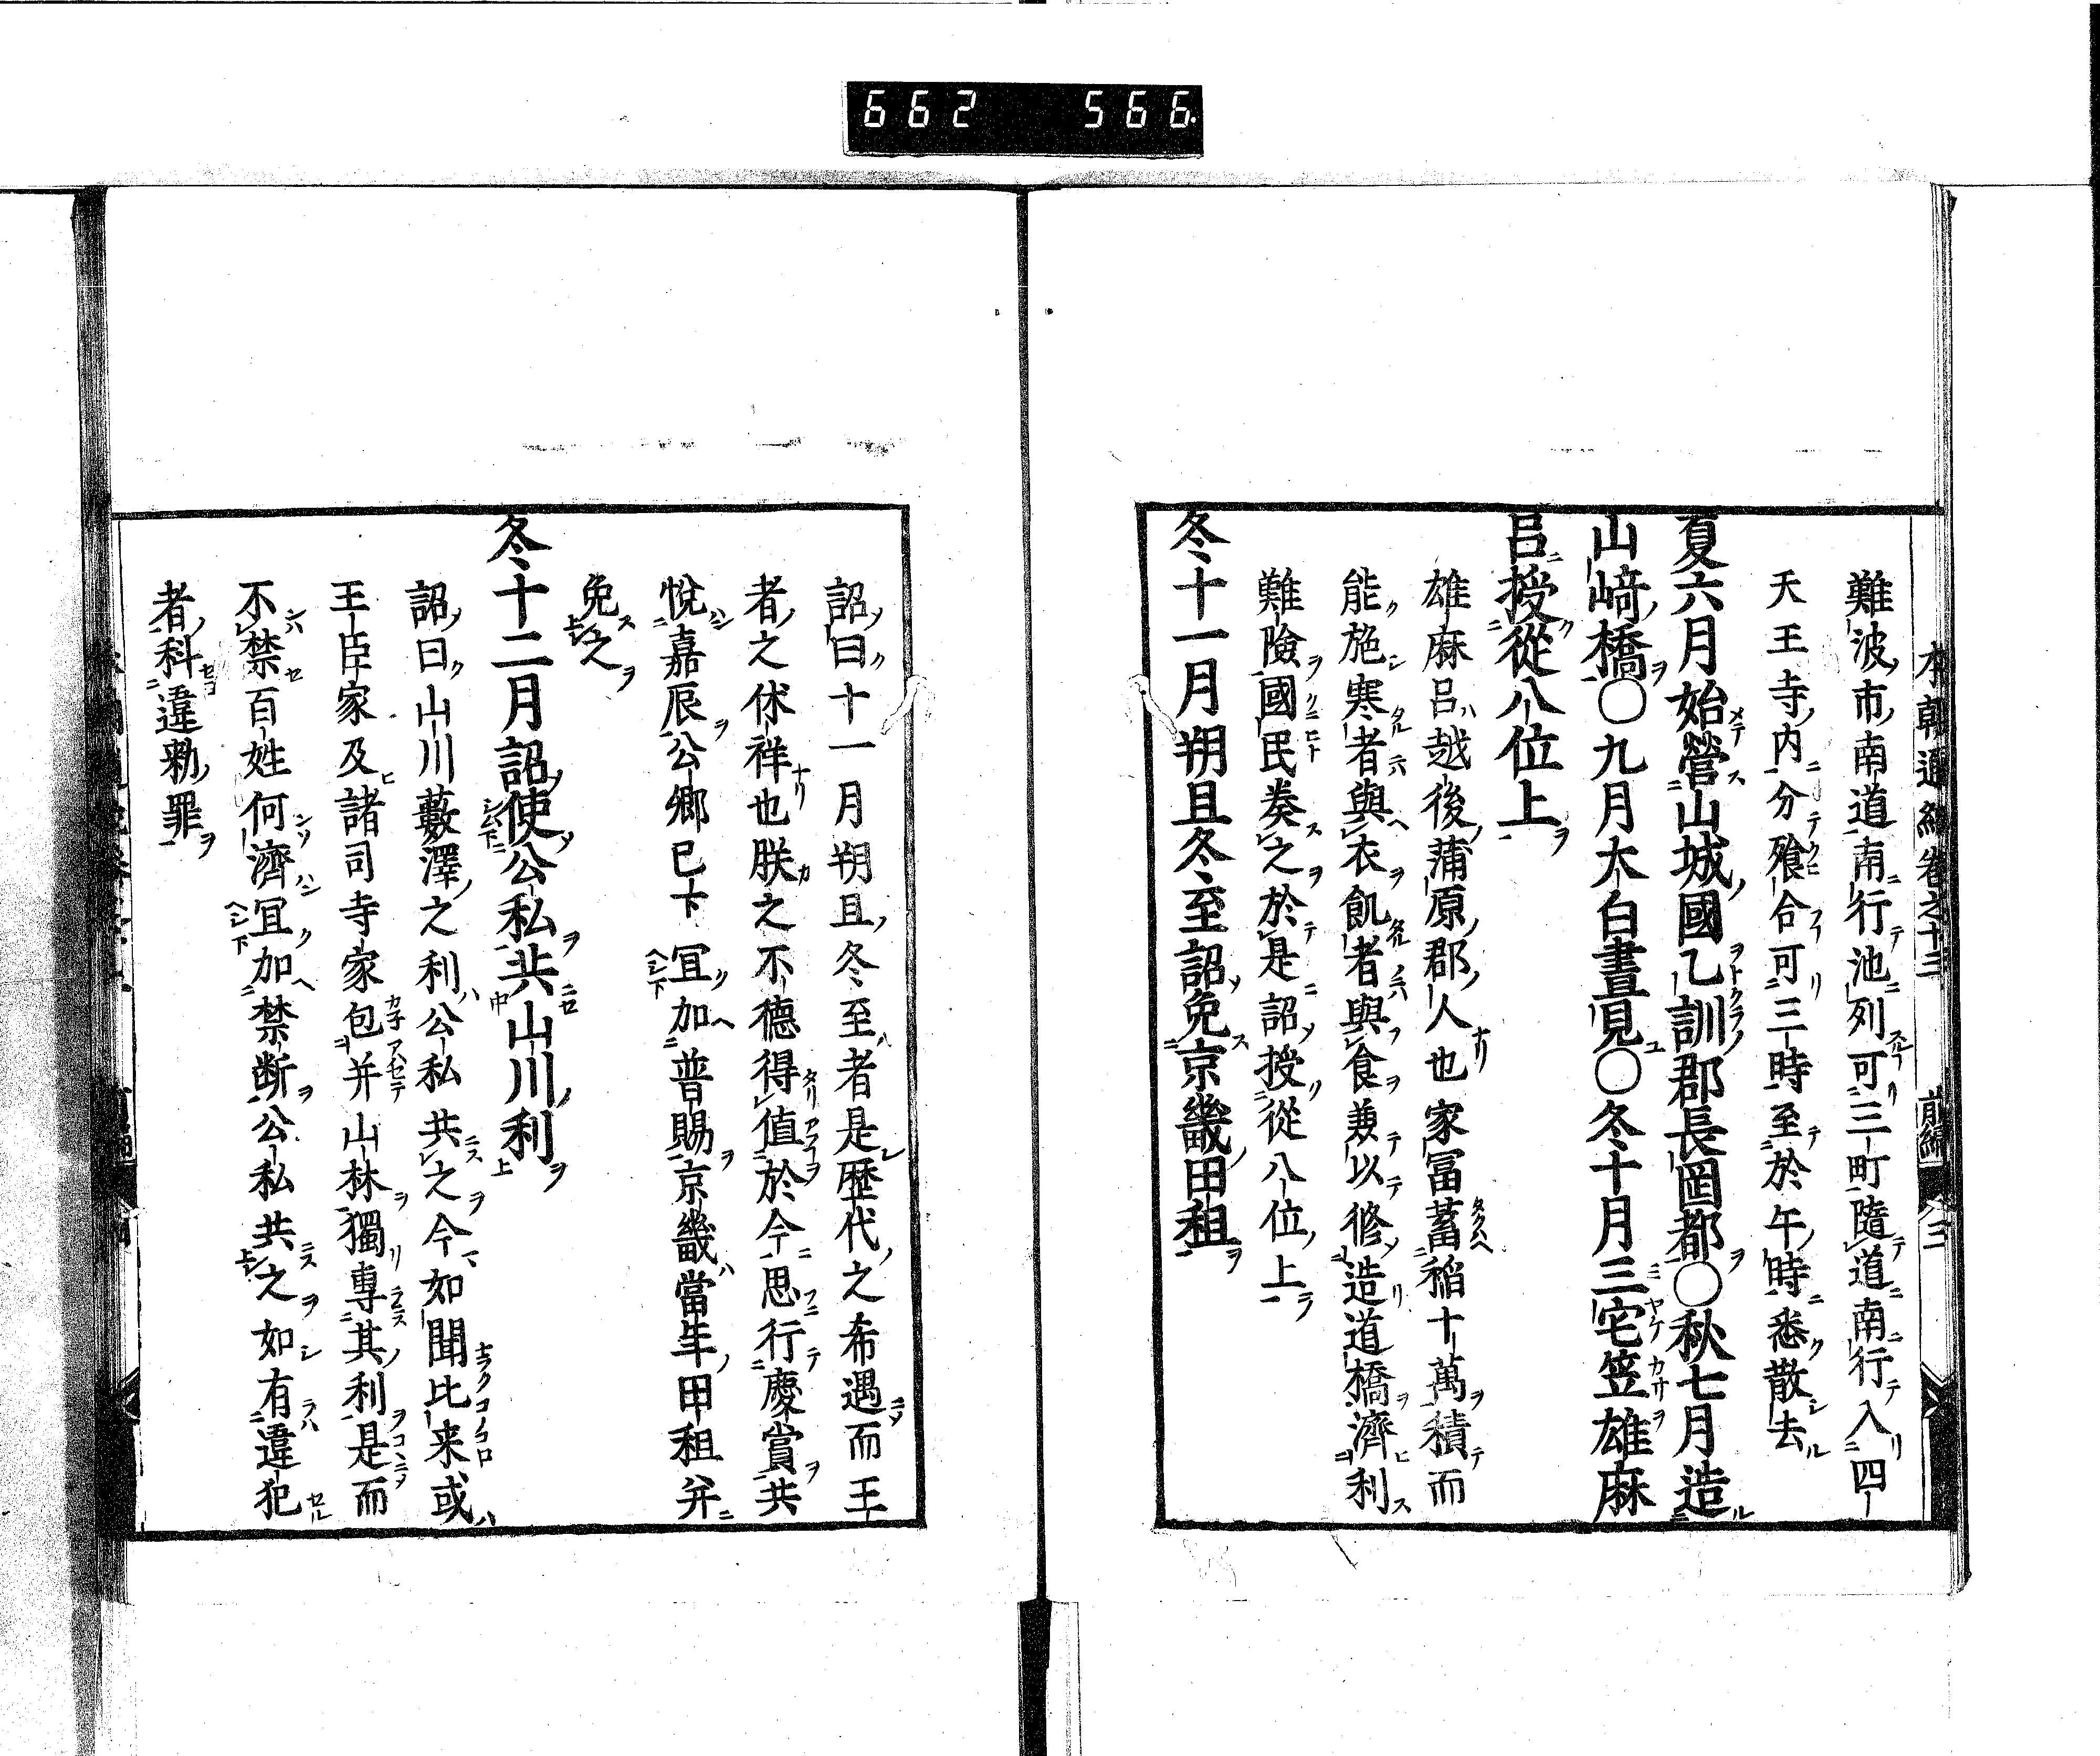 662 566
本朝通紀卷之十三 前編 三
難波市南道南行池列可三町隨道南行入四
天王寺内分飱合可三時至於午時悉散去
夏六月始營山城國乙訓郡長岡都〇秋七月造
山﨑橋〇九月太白晝見〇冬十月三宅笠雄麻
呂授從八位上
雄麻呂越後蒲原郡人也家冨蓄稲十萬積而
能施寒者與衣飢者與食兼以修造道橋濟利
難險國民奏之於是詔授從八位上
冬十一月朔旦冬至詔免京畿田租
詔曰十一月朔旦冬至者是歷代之希遇而王
者之休祥也朕之不德得値於今思行慶賞共
悅嘉辰公卿已下冝加普賜京畿當年田租并
免之
冬十二月詔使公私共山川利
詔曰山川藪澤之利公私共之今如聞比来或
王臣家及諸司寺家包并山林獨專其利是而
不禁百姓何濟冝加禁断公私共之如有違犯
者科違勅罪